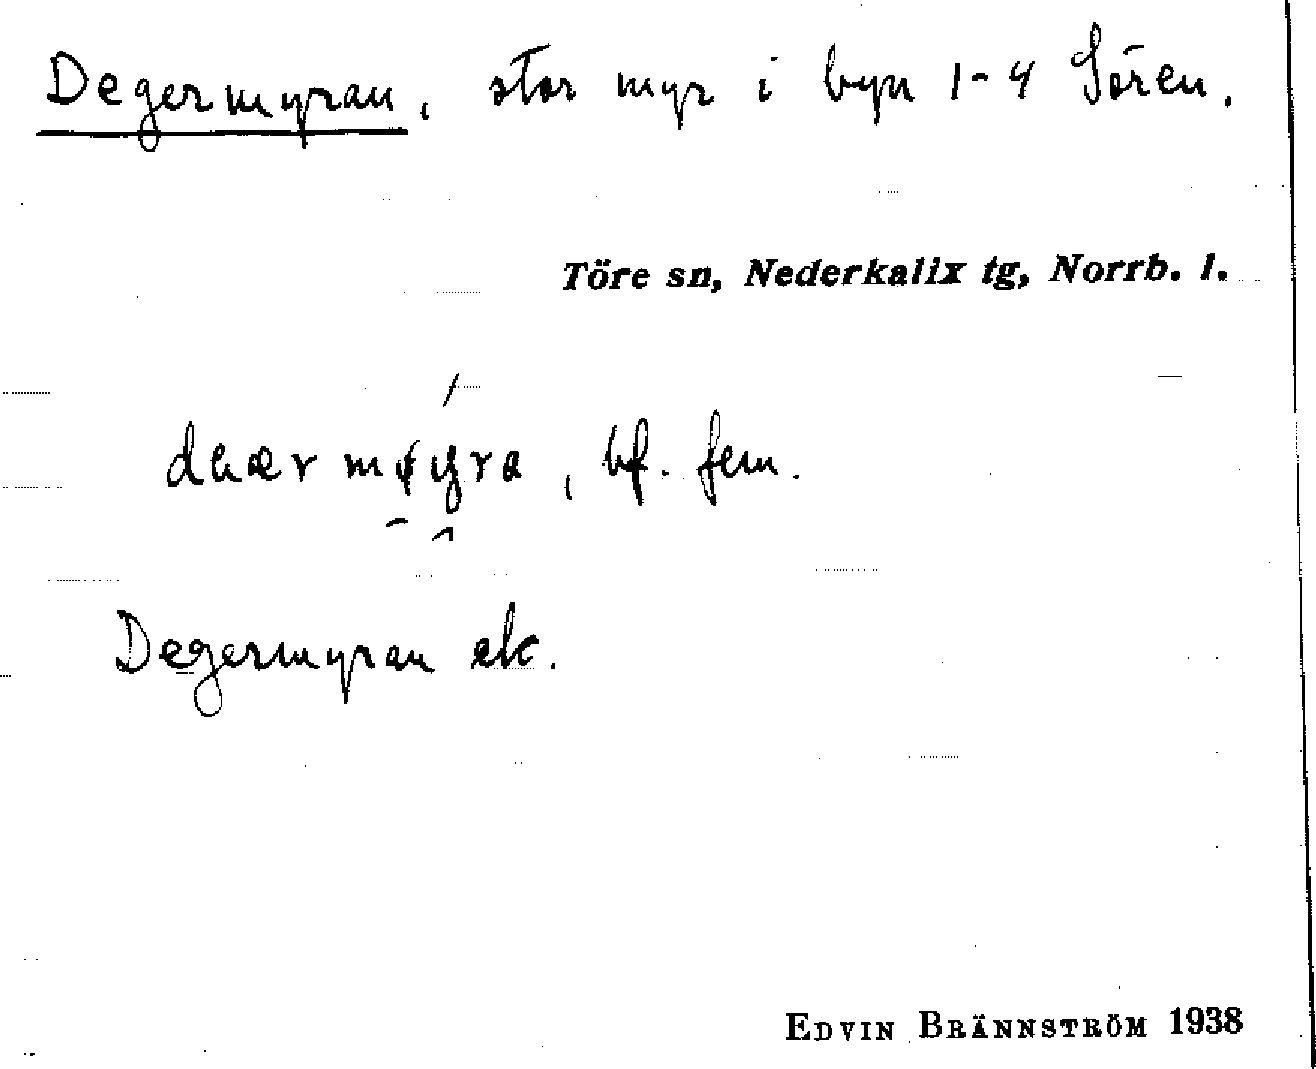 Degermyran, stor myr i byn 1-4 Sören.
Töre sn, Nederkalix tg, Norrb. l.
, bf. fem.
Degermyran ek.
EDVIN BRÄNNSTRÖM 1938